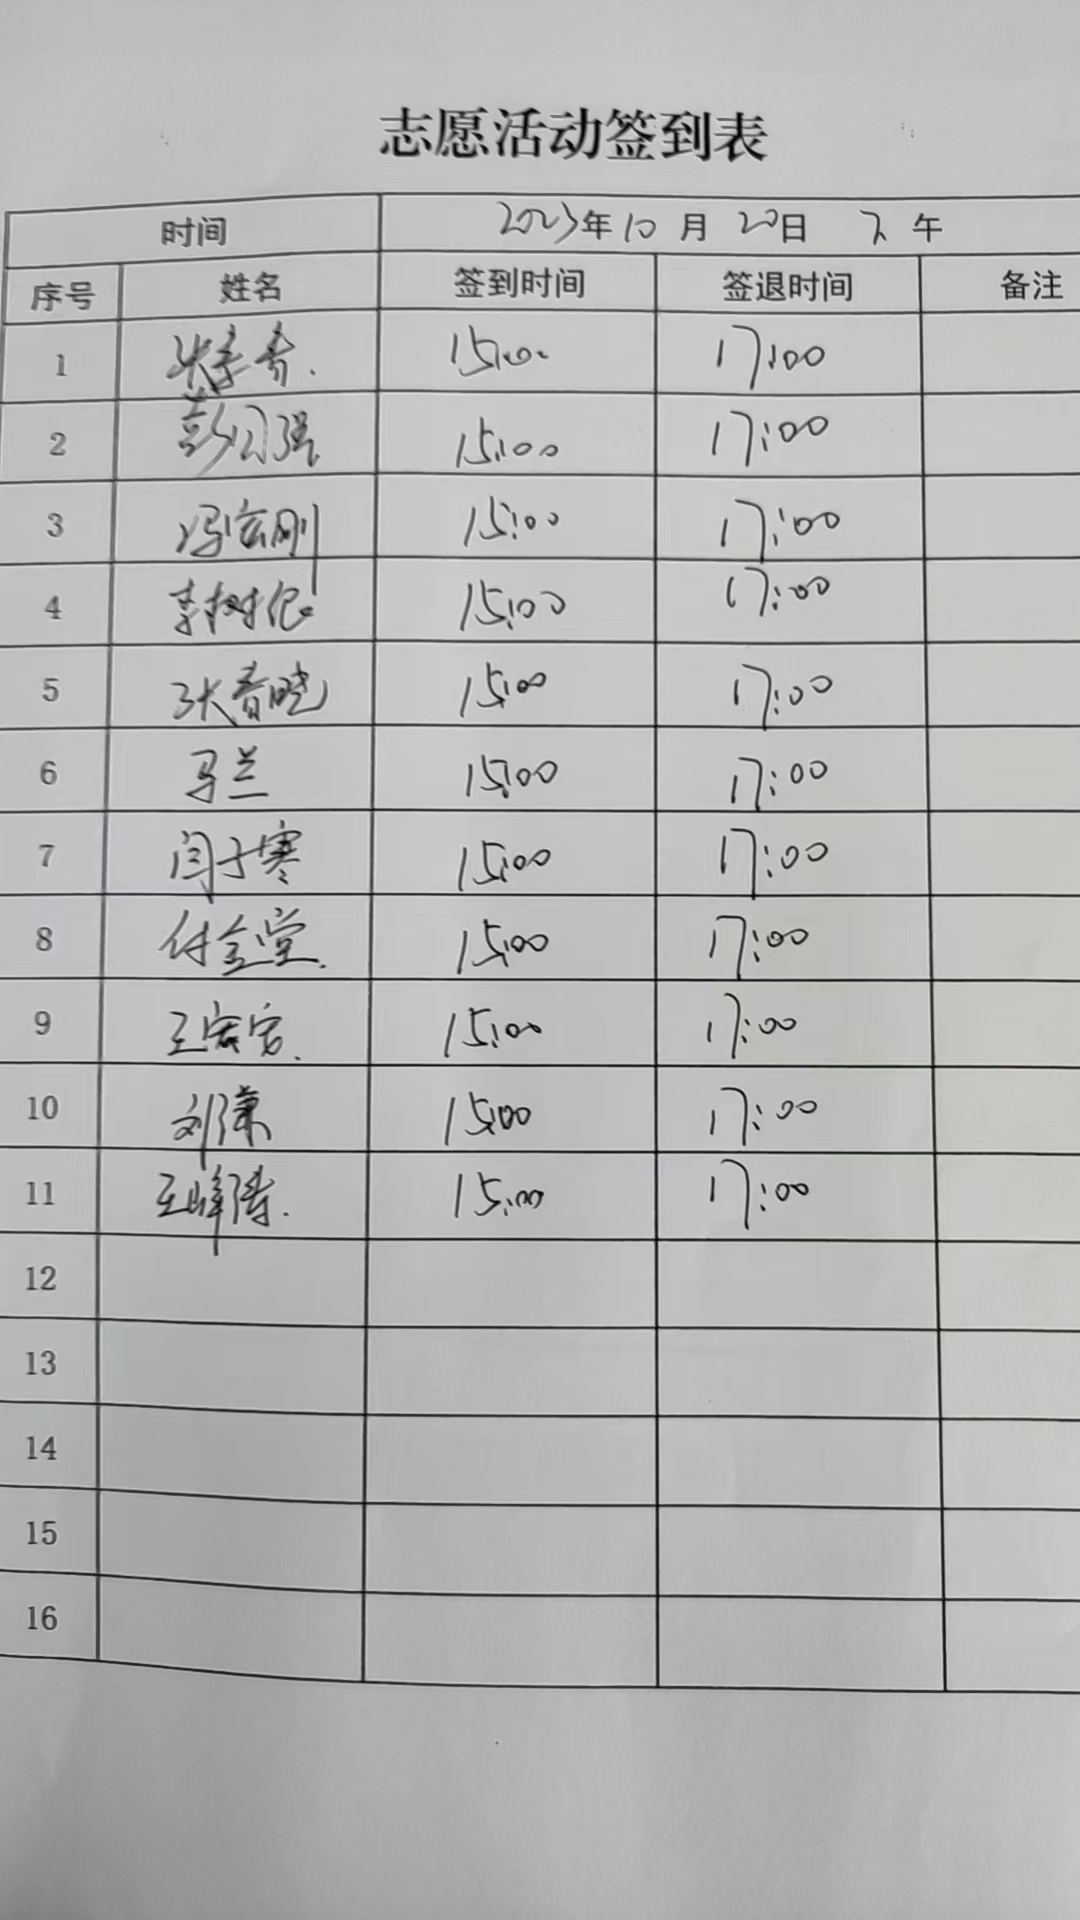 志愿活动签到表
时间 2023年10月20日 下午
序号 姓名 签到时间 签退时间 备注
1 15:00 17:00
2 彭 强 15:00 17:00
3 冯宏刚 15:00 17:00
4 李树 15:00 17:00
5 张春晓 15:00 17:00
6 马兰 15:00 17:00
7 闫子寒 15:00 17:00
8 付金堂. 15:00 17:00
9 王 15:00 17:00
10 刘潇 15:00 17:00
11 王峰涛. 15:00 17:00
12
13
14
15
16